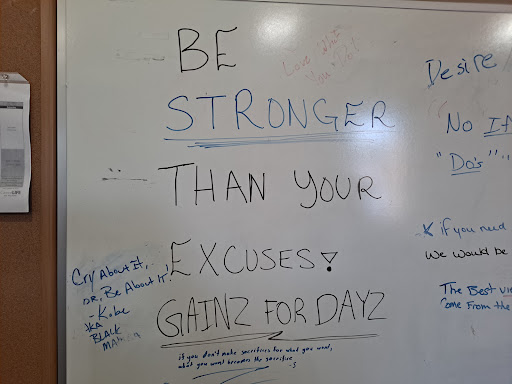 BE
STRONGER
THAN YOUR
EXCUSES!
GAINZ FOR DAYZ
if you don't make sacrifices for what you want,
what you want becomes the sacrifice
-S
Love What
You
Cry About It,
OR, Be About It!
- Kobe
AKA
BLACK
Desire
No If
"Do's"
if you need
We would be
The Best
Come From the